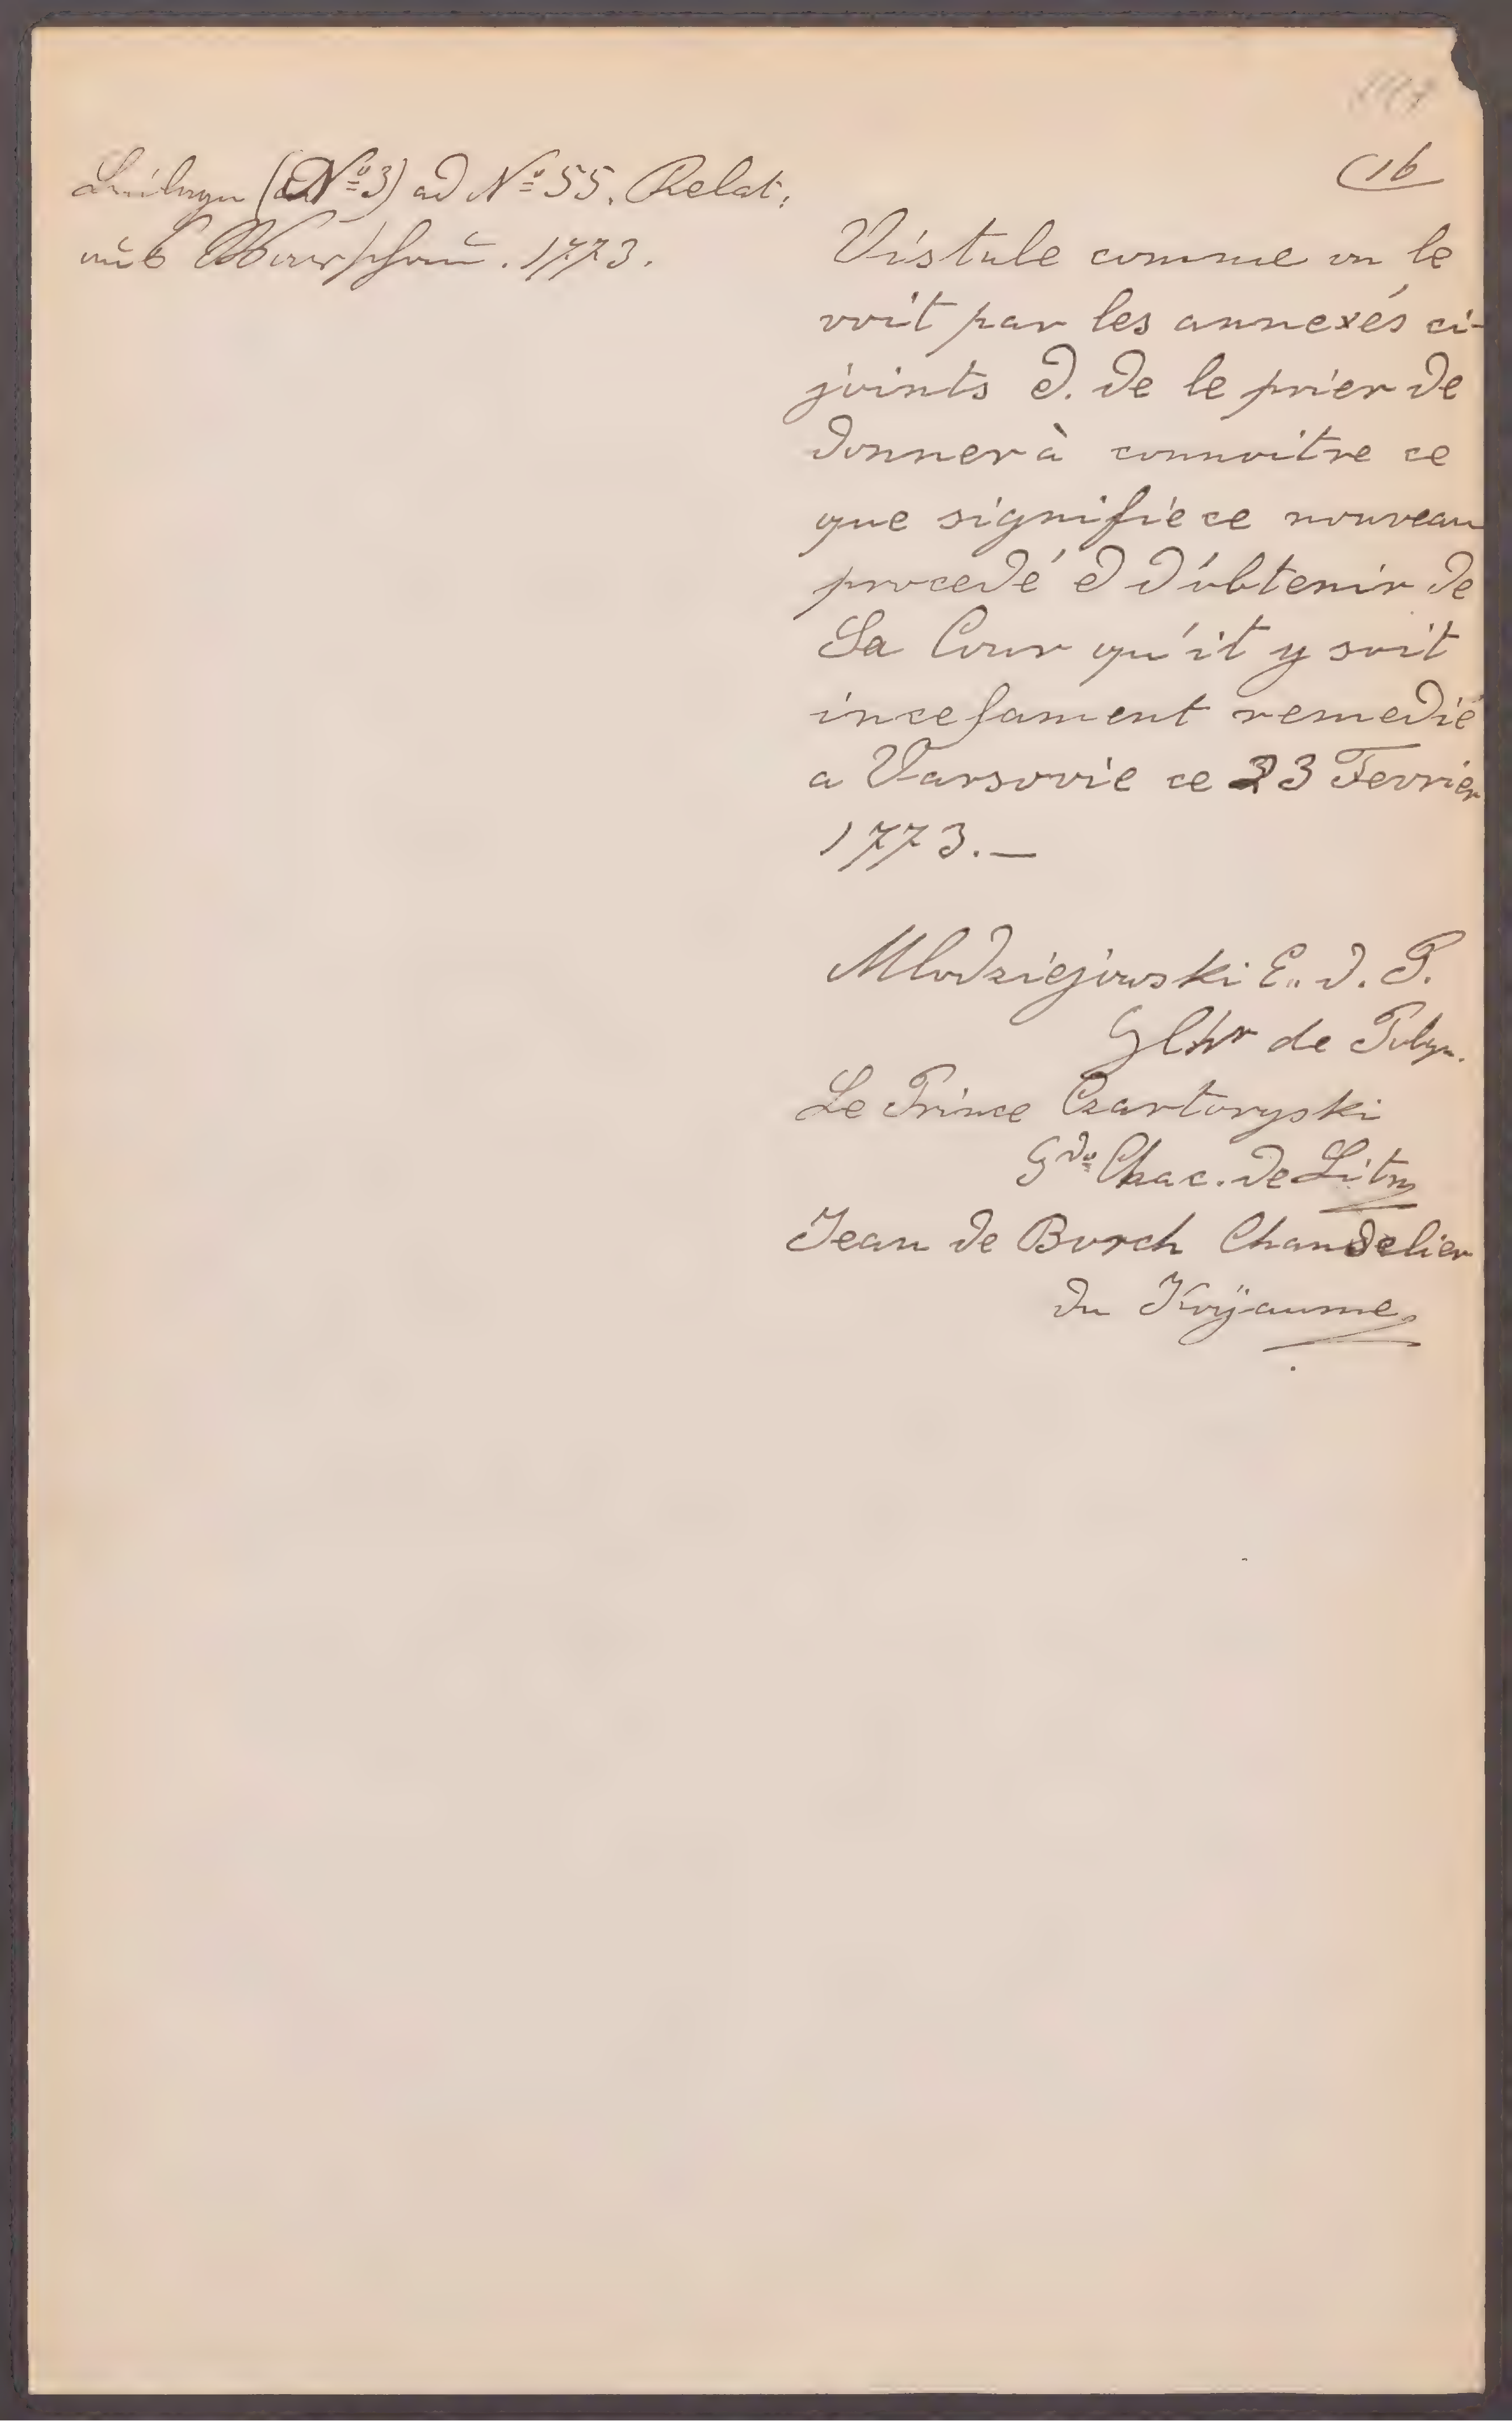 16
Beilage (N⁰ 3) ad N⁰ 55. Relat:
aus Warschau. 1773.
Vistule comme on le
voit par les annexés ci-
joints &. de le prier de
donner à connoitre ce
que signifie ce nouveau
procedé & d'obtenir de
Sa Cour qu'it y soit
incessament remedié
a Varsovie ce 23 Fevrier
1773.—
Mlodziejowski E.. d. P.
de
Le Prince Czartoryski
G^d⁰ Chac. de Lit
Jean de Borch Chandelier
du Royaume